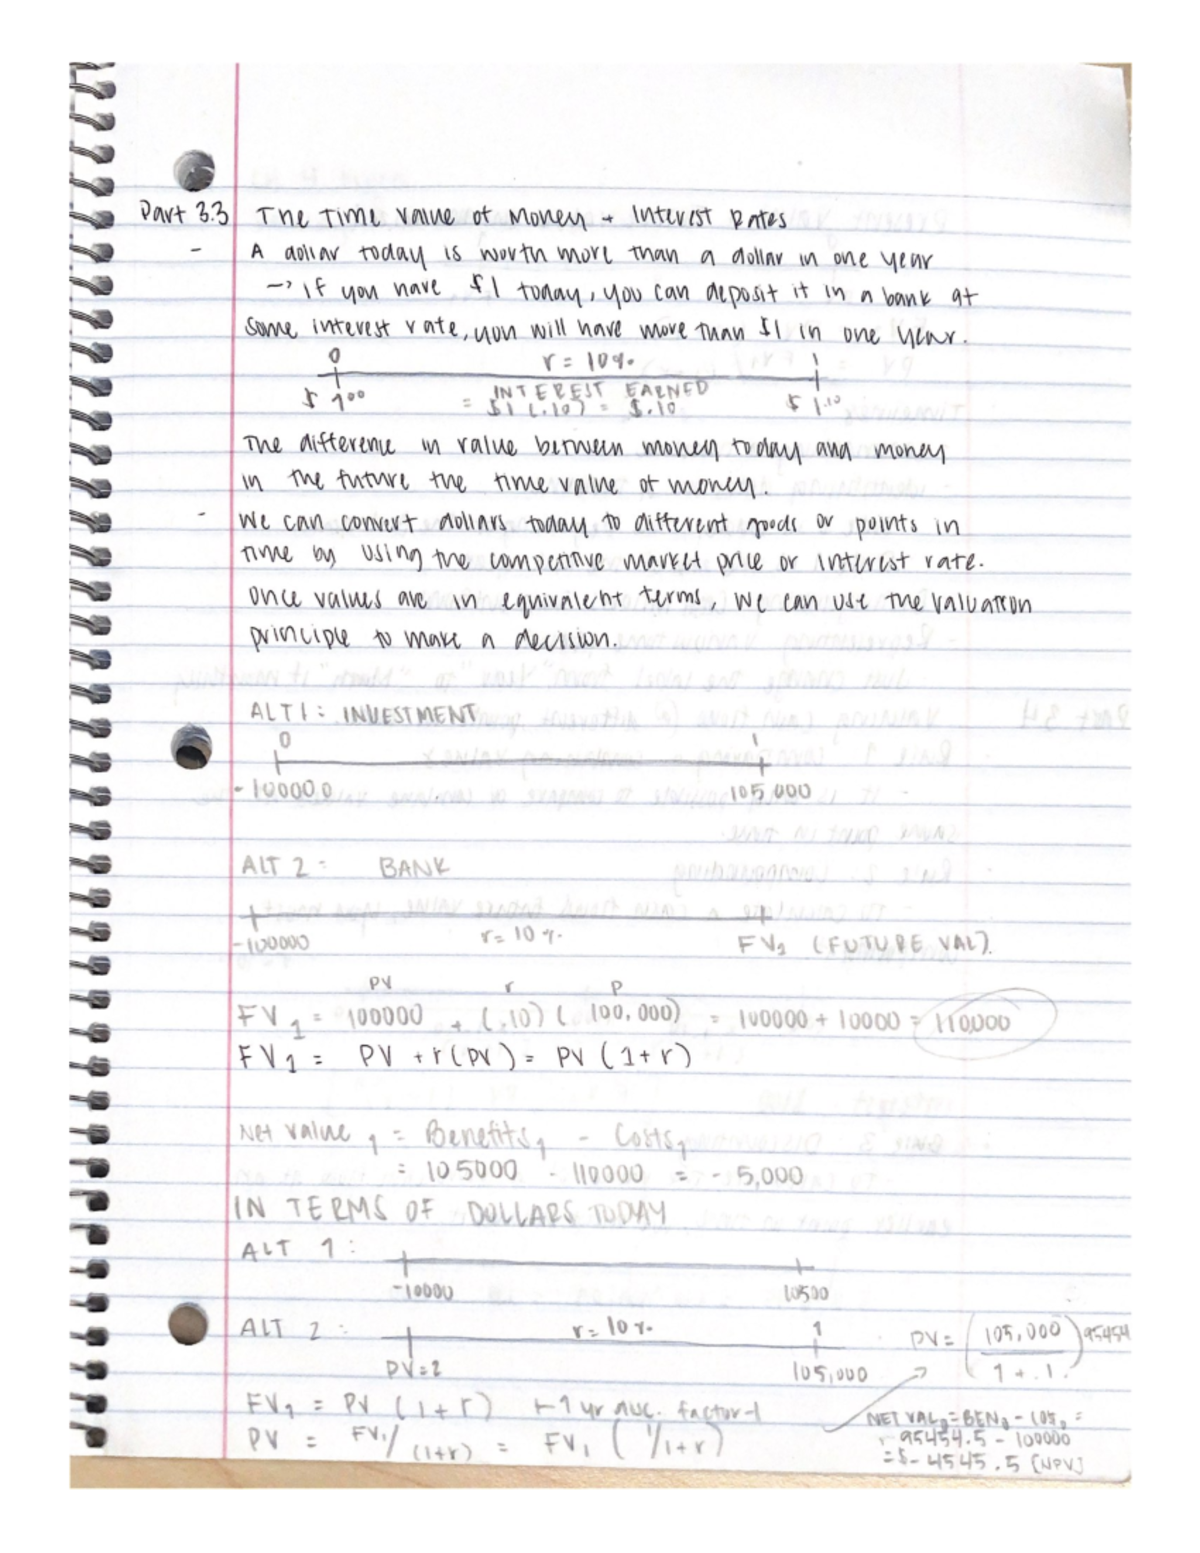 Part 3.3 The Time Value of Money + Interest Rates
- A dollar today is worth more than a dollar in one year
→ if you have $1 today, you can deposit it in a bank at
some interest rate, you will have more than $1 in one year.
0 r = 10% 1
$ 1.00 = INTEREST EARNED $ 1.10
= $1 (.10) = $.10
The difference in value between money today and money
in the future the time value of money.
- We can convert dollars today to different goods or points in
time by using the competitive market price or interest rate.
Once values are in equivalent terms, we can use the valuation
principle to make a decision.
ALT 1: INVESTMENT
0 1
- 100000 105,000
ALT 2: BANK
-100000 r= 10%. FV1 (FUTURE VAL).
PV r P
FV1 = 100000 + (.10) ( 100,000) = 100000 + 10000 = 110,000
FV1 = PV + r(PV) = PV (1+r)
Net value 1 = Benefits1 - Costs1
= 105000 - 110000 = -5,000
IN TERMS OF DOLLARS TODAY
ALT 1:
-10000 10500
ALT 2: r= 10%. 1
PV=? 105,000
PV= (105,000 / 1+.1.) 95454
FV1 = PV (1+r) 1 yr factor
PV = FV1/(1+r) = FV1 (1/1+r)
NET VAL0=BEN0 - COS0 =
95454.5 - 100000
=$- 4545.5 (NPV)